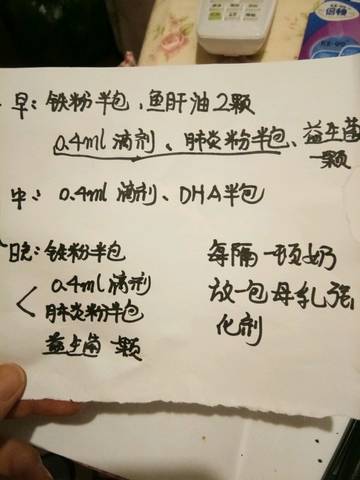 早：铁粉半包、鱼肝油2颗
0.4ml滴剂、肺炎粉半包、益生菌
一颗
中：0.4ml滴剂、DHA半包
晚：铁粉半包
0.4ml滴剂
肺炎粉半包
益生菌一颗
每隔一顿奶
放一包母乳强
化剂